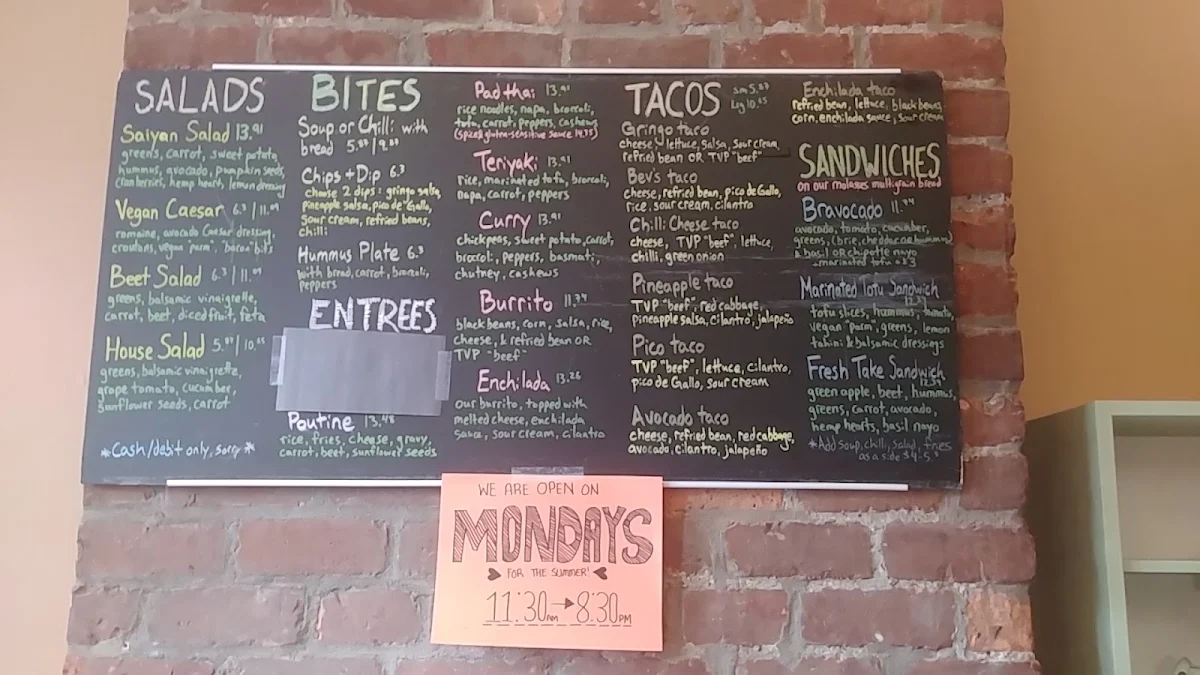 SALADS
Saiyan Salad 13.91
greens, carrot, sweet potato,
hummus, avocado, pumpkin seeds,
cranberries, hemp heart, lemon dressing
Vegan Caesar
romaine, avocado Caesar dressing,
croutons, vegan "parm" "bacon" bits
Beet Salad
greens, balsamic vinaigrette,
carrot, beet, diced fruit, feta
House Salad
greens, balsamic vinaigrette,
grape tomato, cucumber,
sunflower seeds, carrot
*Cash/debit only, sorry*
BITES
Soup or Chili: with
bread
Chips + Dip 6.3
choose 2 dips: gringo salsa,
pineapple salsa, pico de Gallo,
sour cream, refried beans,
chilli
Hummus Plate 6.3
with bread, carrot, broccoli,
peppers
ENTREES
Poutine 13.48
rice, fries, cheese, gravy,
carrot, beet, sunflower seeds
Pad thai 13.91
rice noodles, napa, broccoli,
tofu, carrot, peppers, cashews
Teriyaki 13.91
rice, marinated tofu, broccoli,
napa, carrot, peppers
Curry 13.91
chickpeas, sweet potato, carrot,
broccoli, peppers, basmati,
chutney, cashews
Burrito
black beans, corn, salsa, rice,
cheese, & refried bean OR
TVP "beef"
Enchilada 13.26
our burrito, topped with
melted cheese, enchilada
salsa, sour cream, cilantro
TACOS
Gringo taco
cheese, lettuce, salsa, sour cream,
refried bean OR TVP "beef"
Bev's taco
cheese, refried bean, pico de Gallo,
rice, sour cream, cilantro
Chilli Cheese taco
cheese, TVP "beef", lettuce,
chilli, green onion
Pineapple taco
TVP "beef", red cabbage,
pineapple salsa, cilantro, jalapeño
Pico taco
TVP "beef", lettuce, cilantro,
pico de Gallo, sour cream
Avocado taco
cheese, refried bean, red cabbage,
avocado, cilantro, jalapeño
Enchilada taco
refried bean, lettuce, black beans,
corn, enchilada sauce, sour cream
SANDWICHES
on our molasses multigrain bread
Bravocado
avocado, tomato, cucumber,
greens, (brie, cheddar or hummus)
& basil OR chipotle mayo
Marinated Tofu Sandwich
tofu slices, hummus, tomato,
vegan "parm", greens, lemon
tahini & balsamic dressings
Fresh Take Sandwich
green apple, beet, hummus,
greens, carrot, avocado,
hemp hearts, basil mayo
*Add soup, chilli, salad, fries
as a side
WE ARE OPEN ON
MONDAYS
FOR THE SUMMER!
11:30AM → 8:30PM